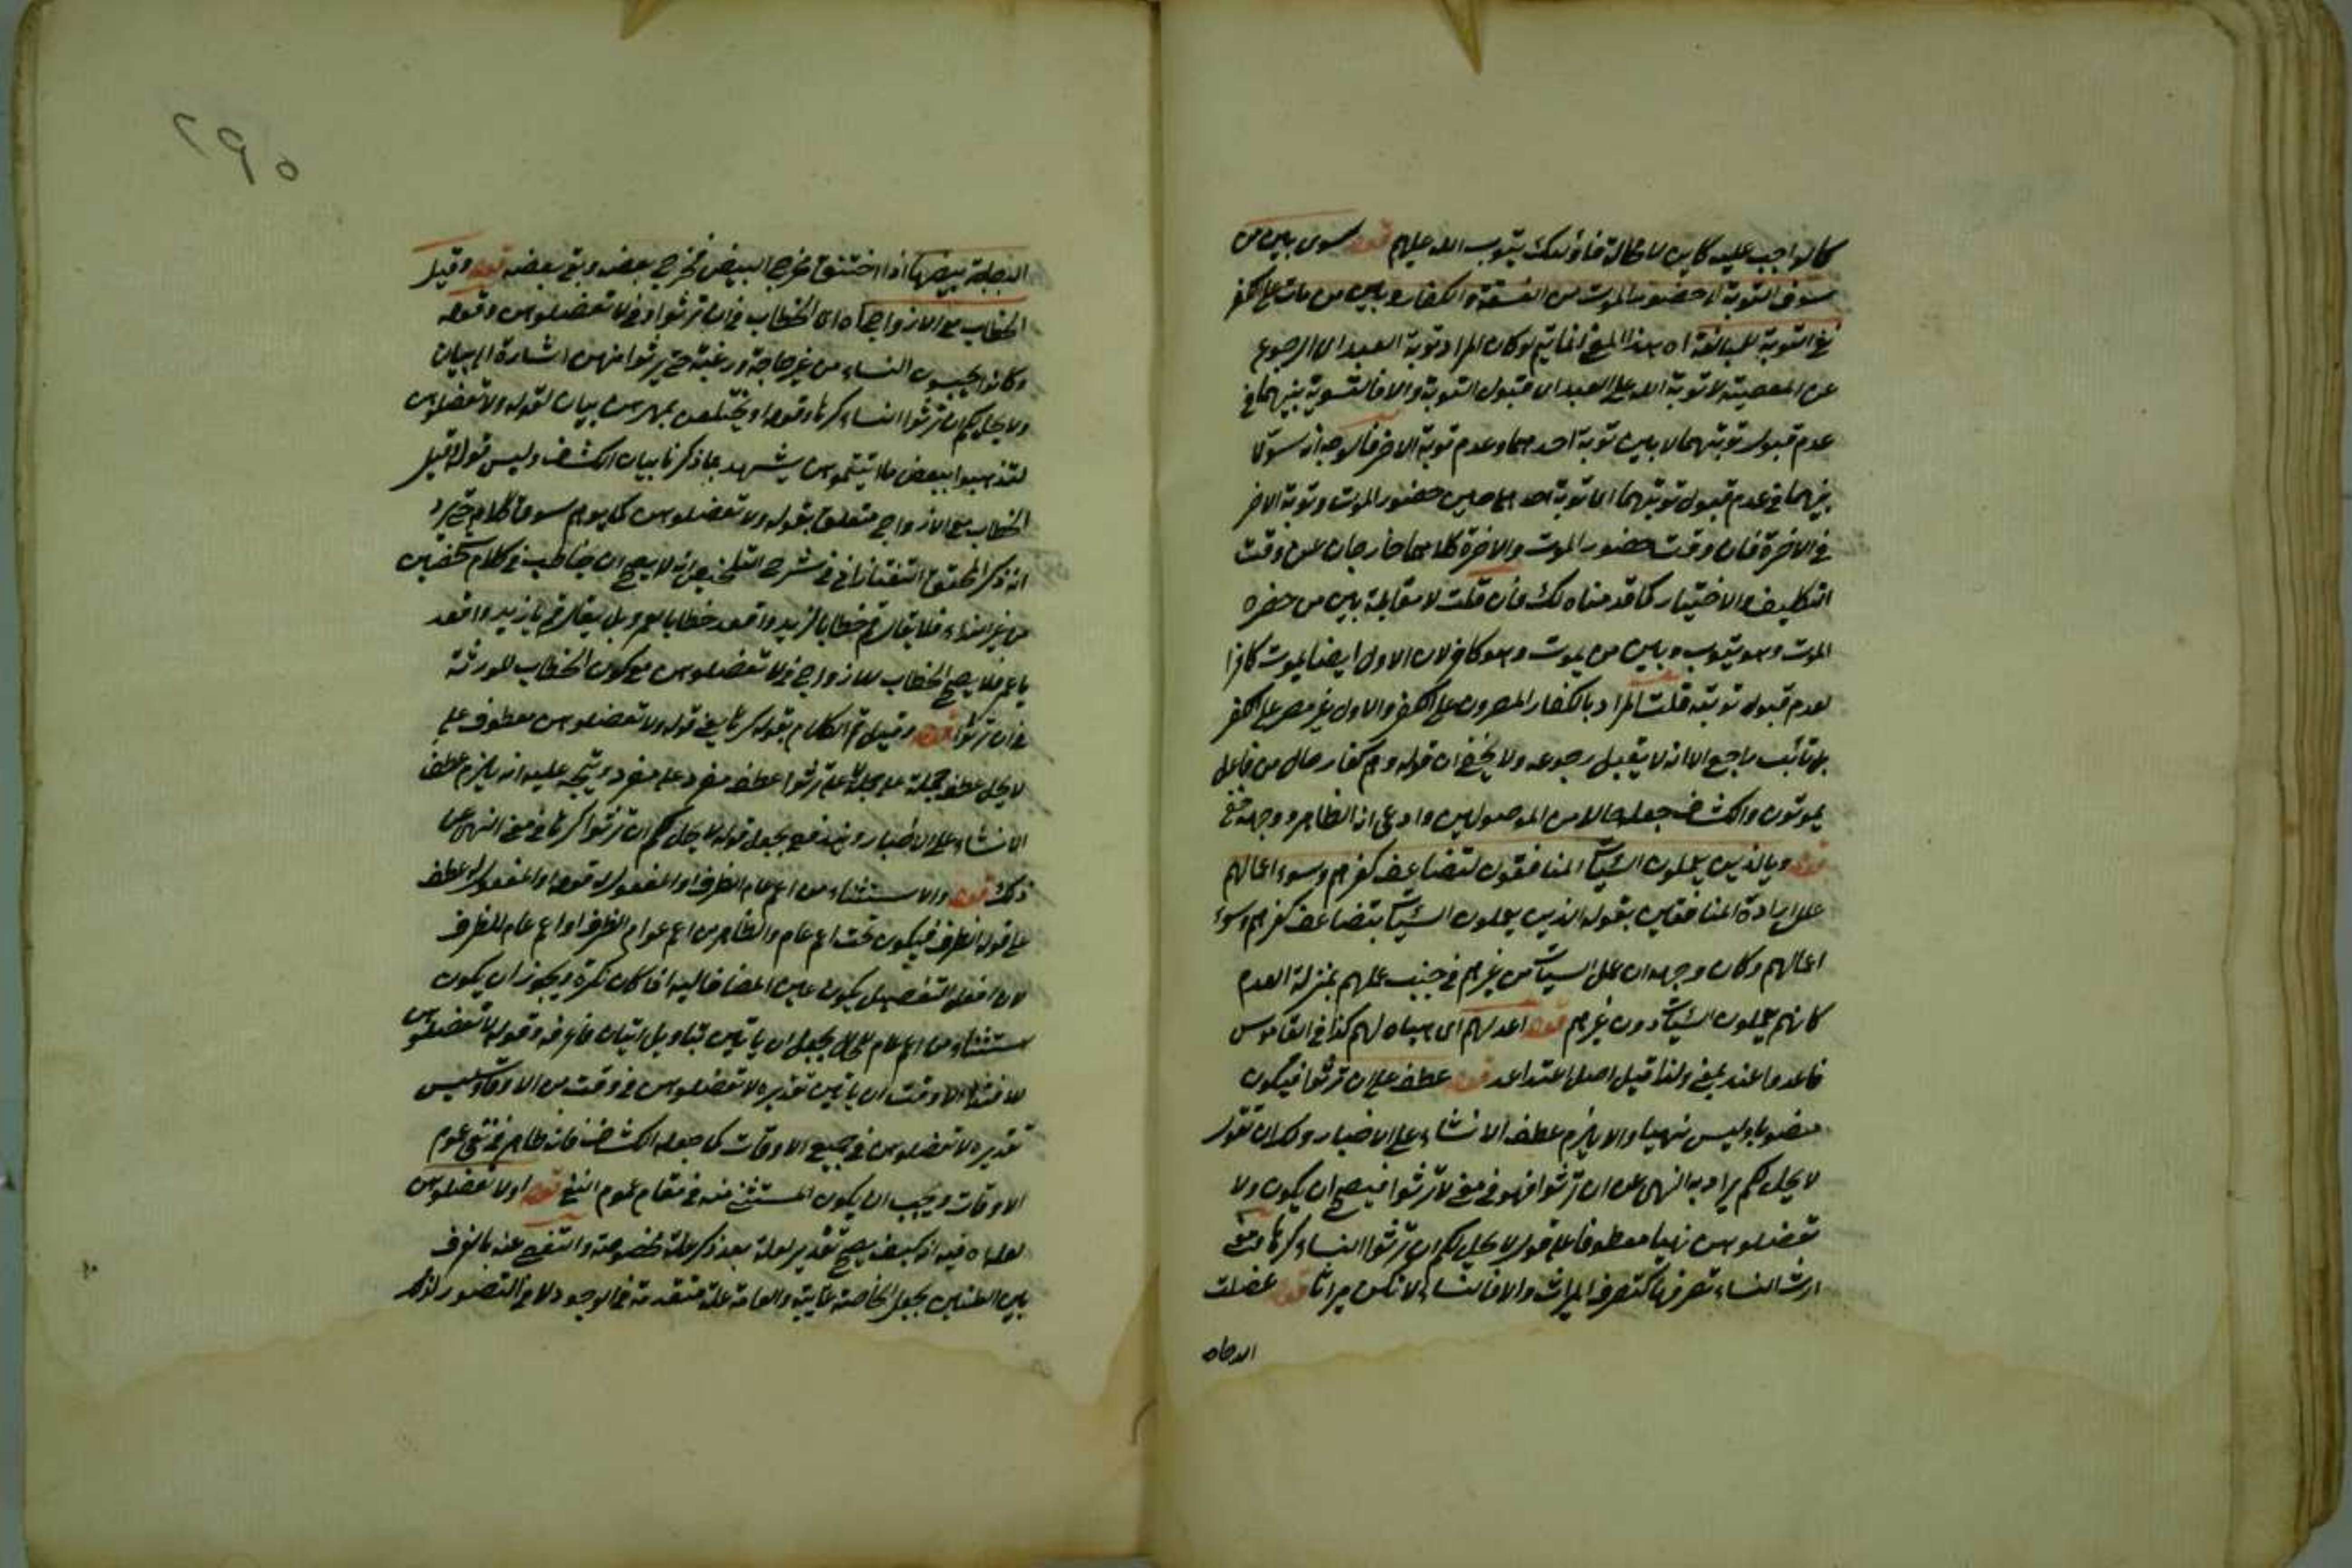 كالواجب عليه كاين لا محالة فاولئك يتوب الله عليهم قوله سوى بين من
سوف التوبة الى حضور الموت من الفسقة والكفار وبين من مات على الكفر
في التوبة للمبالغة اه هذا المعنى انما يتم لو كان المراد توبة العبد اى الرجوع
عن المعصية لا توبة الله على العبد اى قبول التوبة والا فالتسوية بينهما في
عدم قبول توبتهما لا بين توبة احدهما وعدم توبة الاخر فالوجه انه سوى
بينهما في عدم قبول توبتهما اى توبة احدهما حين حضور الموت وتوبة الاخر
في الاخرة فان وقت حضور الموت والاخرة كلاهما خارجان عن وقت
التكليف والاختيار كما قدمناه لك فان قلت لا مقابلة بين من حضره
الموت وهو يتوب وبين من يموت وهو كافر لان الاول ايضا يموت كافرا
لعدم قبول توبته قلت المراد بالكفار المصرون على الكفر والاول غير مصر على الكفر
بل تائب راجع الا انه لا يقبل رجوعه ولا يخفى ان قوله وهم كفار حال من فاعل
يموتون والكشف جعله حالا من الموصولين وادعى انه الظاهر ووجهه خفي
قوله وبالذين يعملون السيآت المنافقون لتضاعف كفرهم وسوء اعمالهم
علل ارادة المنافقين بقوله الذين يعملون السيآت بتضاعف كفرهم وسوء
اعمالهم وكان وجهه ان عمل السيآت من غيرهم في جنب عملهم بمنزلة العدم
كانهم يعملون السيآت دون غيرهم قوله اعد لهم اى هيأه لهم كذا في القاموس
فاعد واعتد بمعنى ولذا قيل اصل اعتد اعد قوله عطف على ان ترثوا فيكون
منصوبا وليس نهيا والا يلزم عطف الانشاء على الاخبار ولك ان تقول
لا يحل لكم يراد به النهى عن ان ترثوا فهو في معنى لا ترثوا فيصح ان يكون ولا
تعضلوهن نهيا معطوفا على قوله لا يحل لكم ان ترثوا النساء كرها
ارث النساء تصرفها كتصرف الميراث والا فالنساء لا تكن ميراثا قوله عضلت
الدجاجة
٢٩٥
ببيضها اذا اختنق مخرج البيض فخرج بعض وبقي بعضه قوله وقيل
الخطاب مع الازواج اه اى الخطاب في ان ترثوا وفي لا تعضلوهن وقوله
وكانوا يحبسون النساء من غير حاجة ورغبة حتى يرثوا منهن اشارة الى بيان
ولا يحل لكم ان ترثوا النساء كرها وقوله او يختلعن بمهرهن بيان لقوله ولا تعضلوهن
لتذهبوا ببعض ما آتيتموهن يشهد بما ذكرنا بيان الكشف وليس قوله وقيل
الخطاب مع الازواج متعلق بقوله ولا تعضلوهن كما يوهم سوق كلامه
انه ذكر المحقق التفتازاني في شرح التلخيص انه لا يصح ان يخاطب في كلام شخصين
من غير نداء فلا يقال قم خطابا لزيد واقعد خطابا لعمرو بل يقال قم يا زيد واقعد
يا عمرو فلا يصح الخطاب للازواج في لا تعضلوهن مع كون الخطاب للورثة
في ان ترثوا قوله وقيل تم الكلام بقوله كرها يعني قوله ولا تعضلوهن معطوف على
لا يحل عطف جملة على جملة لا على ترثوا عطف مفرد على مفرد ويتجه عليه انه يلزم عطف
الانشاء على الاخبار ويندفع بجعل قوله لا يحل لكم ان ترثوا كرها في معنى النهى عن
ذلك قوله والاستثناء من اعم عام الظرف او المفعول له قوله او المفعول له عطف
على قوله الظرف فيكون تحت اعم عام والظاهر من اعم عوام الظرف او اعم عام للظرف
لان افعل التفضيل يكون عين المضاف اليه اذا كان نكرة ويجوز ان يكون
استثناء من اعم عام الحال بجعل ان ياتين بتاويل اتيان فاعرفه وقوله لا تعضلوهن
للافتداء الا وقت ان ياتين تقديره لا تعضلوهن في وقت من الاوقات وليس
تقديره لا تعضلوهن في جميع الاوقات كما جعله الكشف فانه ظاهر في نفى عموم
الاوقات ويجب ان يكون المستثنى منه في مقام عموم النفى قوله او لا تعضلوهن
لعلة اه فيه انه كيف يصح تقدير لعلة بعد ذكر علة مخصوصة والتفصى عنه بالفرق
بين العلتين بجعل الخاصة غايية والعامة علة متقدمة في الوجود